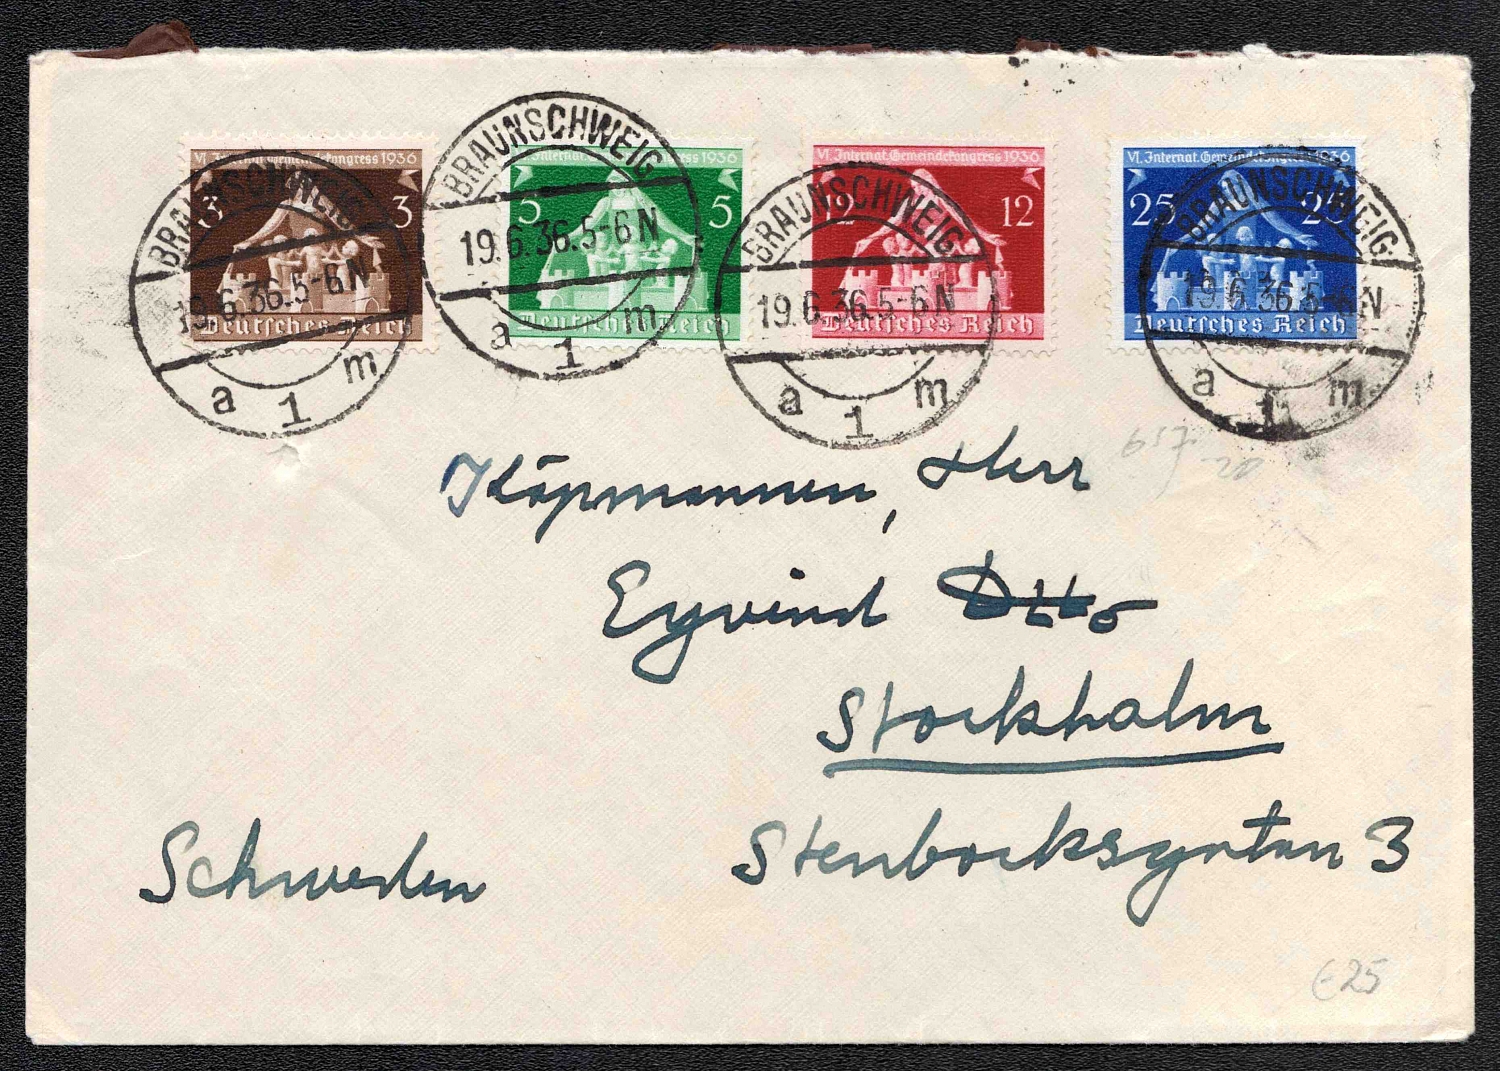 VI. Internat. Gemeindekongress 1936
3 3
Deutsches Reich
BRAUNSCHWEIG
19.6.36.5-6N
a 1 m
Internat. 1936
5 5
Deutsches Reich
BRAUNSCHWEIG
19.6.36.5-6N
a 1 m
VI. Internat. Gemeindekongress 1936
12 12
Deutsches Reich
BRAUNSCHWEIG
19.6.36.5-6N
a 1 m
VI. Internat. Gemeindekongress 1936
25 25
Deutsches Reich
BRAUNSCHWEIG
19.6.36.5-6N
a 1 m
Köpmannen, Herr
Eyvind Otto
Stockholm
Stenbocksgatan 3
Schweden
€25